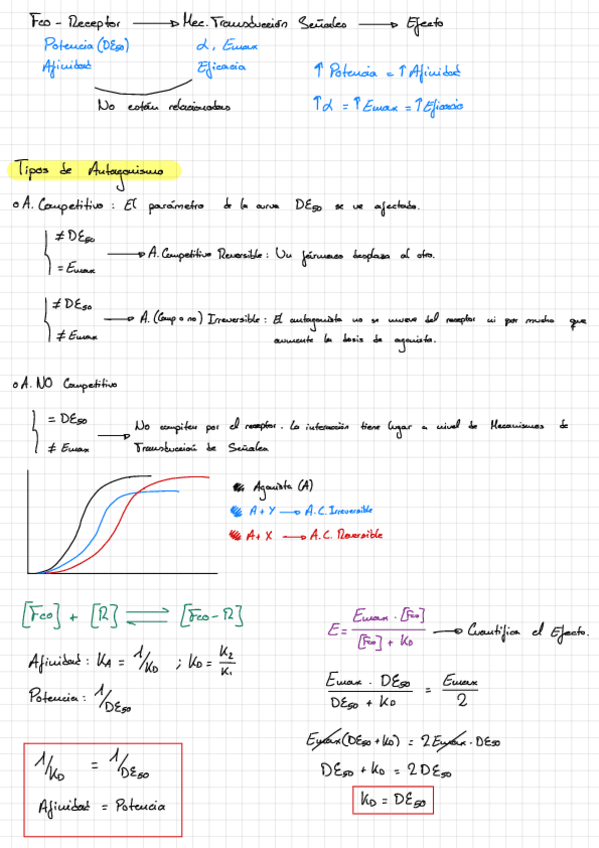 Fco - Receptor → Mec. Transducción Señales → Efecto
Potencia (DE50) α, Emax
Afinidad Eficacia ↑ Potencia = ↑ Afinidad
No están relacionadas ↑α = ↑Emax = ↑Eficacia
Tipos de Antagonismo
o A. Competitivo : El parámetro de la curva DE50 se ve afectado.
≠ DE50
= Emax → A. Competitivo Reversible : Un fármaco desplaza al otro.
≠ DE50
≠ Emax → A. (Comp o no) Irreversible : El antagonista no se mueve del receptor ni por mucho que
aumente la dosis de agonista.
o A. NO Competitivo
= DE50
≠ Emax → No compiten por el receptor. La interacción tiene lugar a nivel de Mecanismos de
Transducción de Señales
Agonista (A)
A + Y → A.C. Irreversible
A + X → A.C. Reversible
[Fco] + [R] ⇌ [Fco - R]
E = Emax · [Fco] / [Fco] + KD → Cuantifica el Efecto.
Afinidad : KA = 1/KD ; KD = K2/K1
Potencia : 1/DE50
Emax · DE50 / DE50 + KD = Emax / 2
Emax (DE50 + KD) = 2 Emax · DE50
DE50 + KD = 2 DE50
KD = DE50
1/KD = 1/DE50
Afinidad = Potencia